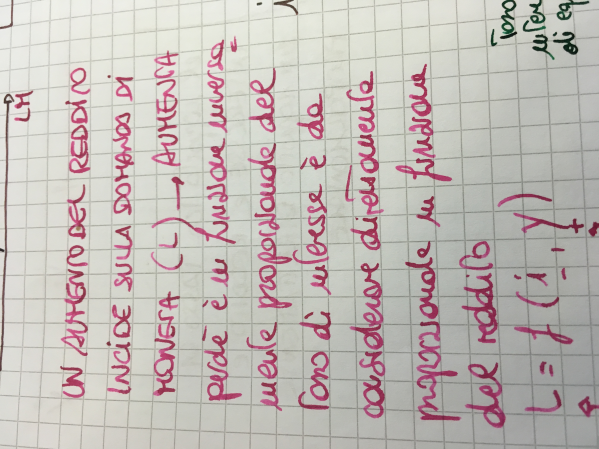 LM
UN AUMENTO DEL REDDITO
INCIDE SULLA DOMANDA DI
MONETA (L) → AUMENTA
perché è in funzione inversa
mente proporzionale del
tasso di interesse è da
considerare direttamente
proporzionale in funzione
del reddito
L = f (i, Y)
Tasso
interesse
di eq